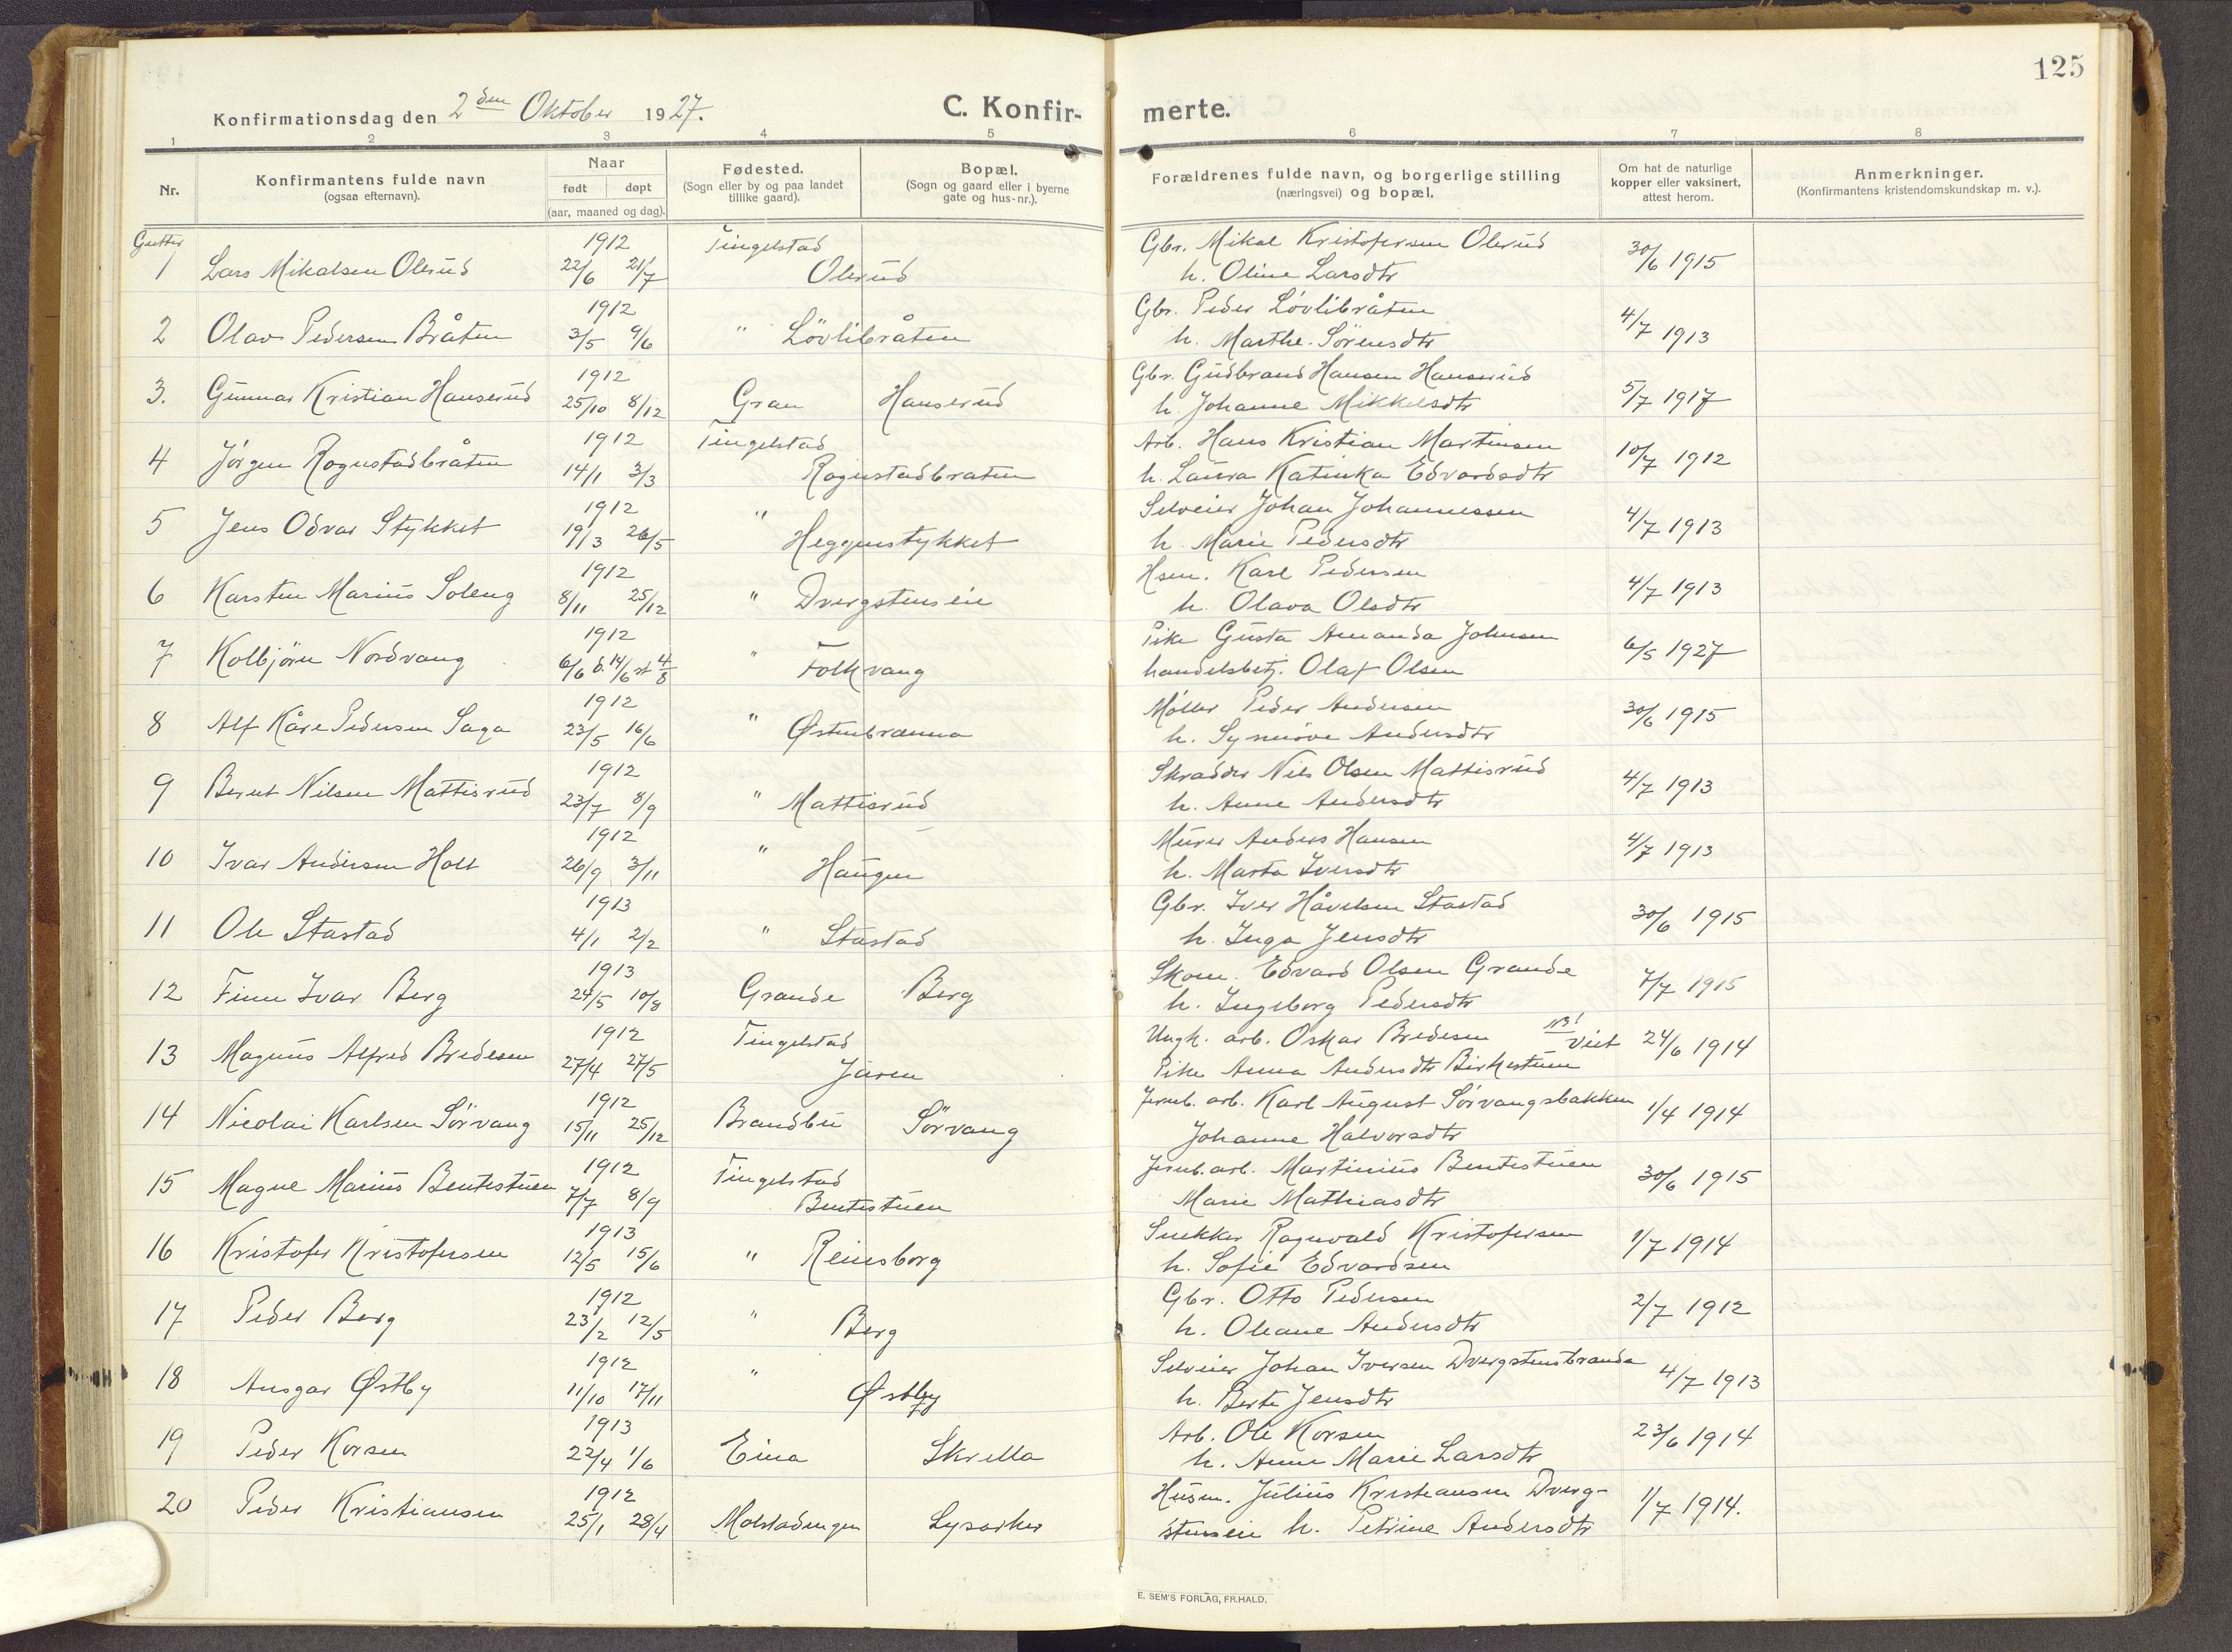 125
Konfirmationsdag den 2den Oktober 1927.
C. Konfirmerte.
1 2 3 4 5 6 7 8
Nr. | Konfirmantens fulde navn (ogsaa efternavn). | Naar født | døpt (aar, maaned og dag). | Fødested. (Sogn eller by og paa landet tillike gaard). | Bopæl. (Sogn og gaard eller i byerne gate og hus-nr.). | Forældrenes fulde navn, og borgerlige stilling (næringsvei) og bopæl. | Om hat de naturlige kopper eller vaksinert, attest herom. | Anmerkninger. (Konfirmantens kristendomskundskap m. v.).
Gutter
1 Lars Mikalsen Olerud 1912 22/6 21/7 Tingelstad Olerud Gbr. Mikal Kristofersen Olerud h. Oline Larsdtr 30/6 1915
2 Olav Pedersen Bråten 1912 3/5 9/6 " Lövlibråten Gbr. Peder Lövlibråten h. Marthe Sörensdtr 4/7 1913
3. Gunnar Kristian Hanserud 1912 25/10 8/12 Gran Hanserud Gbr. Gudbrand Hansen Hanserud h. Johanne Mikkelsdtr 5/7 1917
4 Jörgen Rognstadbråten 1912 14/1 3/3 Tingelstad Rognstadbraten Arb. Hans Kristian Martinsen h. Laura Katinka Edvardsdtr 10/7 1912
5 Jens Odvar Stykket 1912 19/3 26/5 " Heggenstykket Selveier Johan Johannessen h. Marie Pedersdtr 4/7 1913
6 Karsten Marius Soleng 1912 8/11 25/12 " Dvergsteneie Hsm. Karl Pedersen h. Olava Olsdtr 4/7 1913
7 Kolbjörn Nordvang 1912 6/6 d. 14/6 st 4/8 " Folkvang Pike Gusta Amanda Johnsen handelsbetj. Olaf Olsen 6/5 1927
8 Alf Kåre Pedersen Saga 1912 23/5 16/6 " Østenbrænna Möller Peder Andersen h. Synnöve Andersdtr 30/6 1915
9 Bernt Nilsen Mattisrud 1912 23/7 8/9 " Mattisrud Skrædder Nils Olsen Mattisrud h. Anne Andersdtr 4/7 1913
10 Ivar Andersen Holt 1912 26/9 3/11 " Haugen Murer Anders Hansen h. Marta Iversdtr 4/7 1913
11 Ole Stastad 1913 4/1 2/2 " Stastad Gbr. Iver Håvelsen Stastad h. Inga Jensdtr 30/6 1915
12 Finn Ivar Berg 1913 24/5 10/8 Grande Berg Skom. Edvard Olsen Grande h. Ingeborg Pedersdtr 7/7 1915
13 Magnus Alfred Bredesen 1912 27/4 27/5 Tingelstad Jaren Ungk. arb. Oskar Bredesen NB! viet Pike Anna Andersdtr Birkestuen 24/6 1914
14 Nicolai Karlsen Sörvang 1912 15/11 25/12 Brandbu Sörvang Jernb. arb. Karl August Sörvangsbakken Johanne Halvorsdtr 1/4 1914
15 Magne Marius Bentestuen 1912 7/7 8/9 Tingelstad Bentestuen Jernb. arb. Martinius Bentestuen Marie Mathiasdtr 30/6 1915
16 Kristofer Kristofersen 1913 12/5 15/6 " Reinsborg Snekker Ragnvald Kristofersen h. Sofie Edvardsen 1/7 1914
17 Peder Berg 1912 23/2 12/5 " Berg Gbr. Otto Pedersen h. Oleane Andersdtr 2/7 1912
18 Ansgar Østby 1912 11/10 17/11 " Østby Selveier Johan Iversen Dvergstensbranda h. Berte Jensdtr 4/7 1913
19 Peder Korsen 1913 22/4 1/6 Eina Skrella Arb. Ole Korsen h. Anne Marie Larsdtr 23/6 1914
20 Peder Kristiansen 1912 25/1 28/4 Molstadengen Lysaker Husm. Julius Kristiansen Dvergsteneie h. Petrine Andersdtr 1/7 1914.
E. SEM'S FORLAG, FR.HALD.